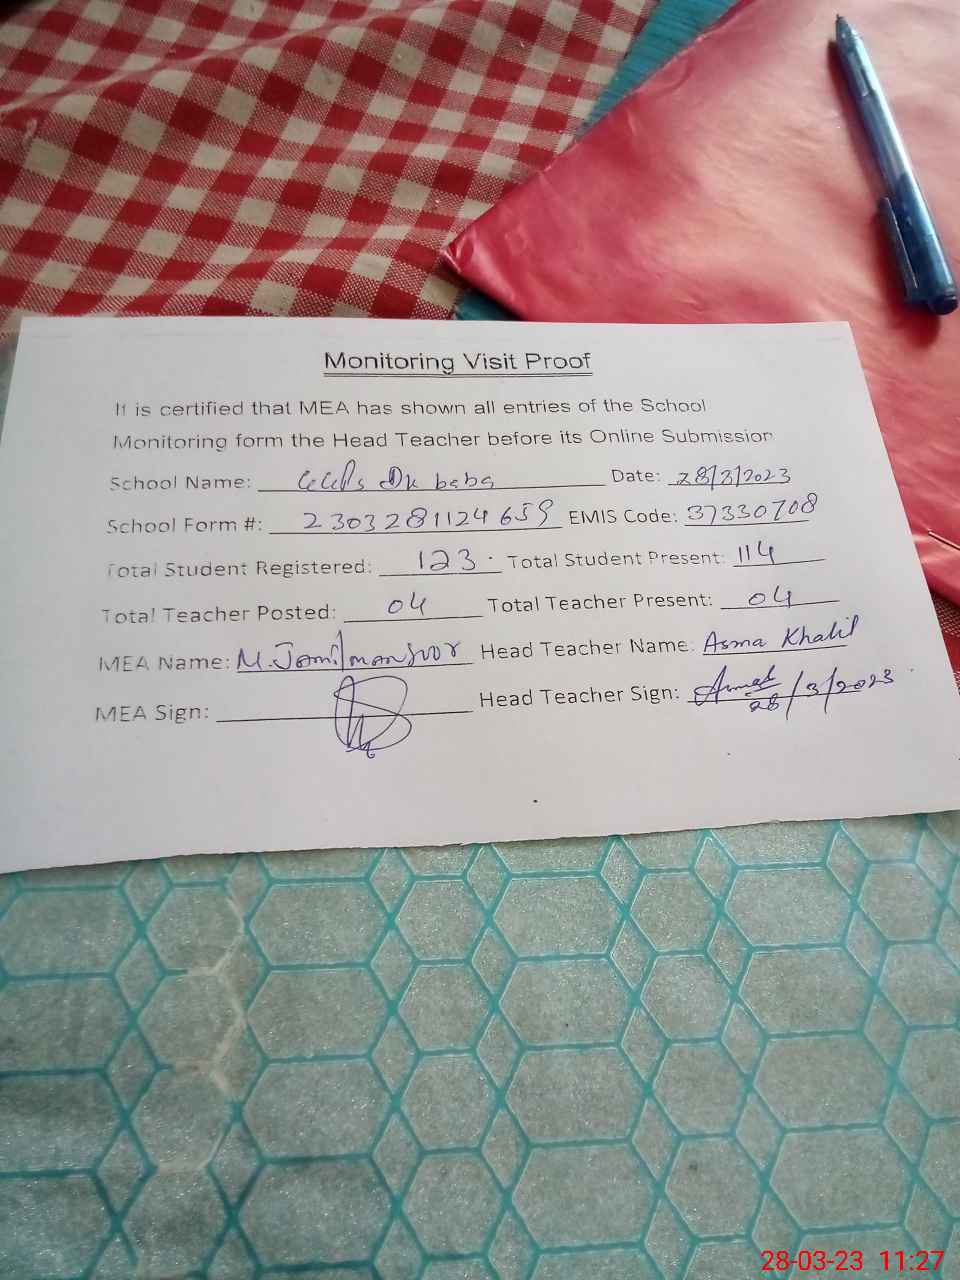 Monitoring Visit Proof
It is certified that MEA has shown all entries of the School
Monitoring form the Head Teacher before its Online Submission
School Name: Dk baba Date: 28/3/2023
School Form #: 2303281124659 EMIS Code: 37330708
Total Student Registered: 123 Total Student Present: 114
Total Teacher Posted: 04 Total Teacher Present: 04
MEA Name: M. Jamil mansoor Head Teacher Name: Asma Khalil
MEA Sign: Head Teacher Sign: 28/3/2023
28-03-23 11:27